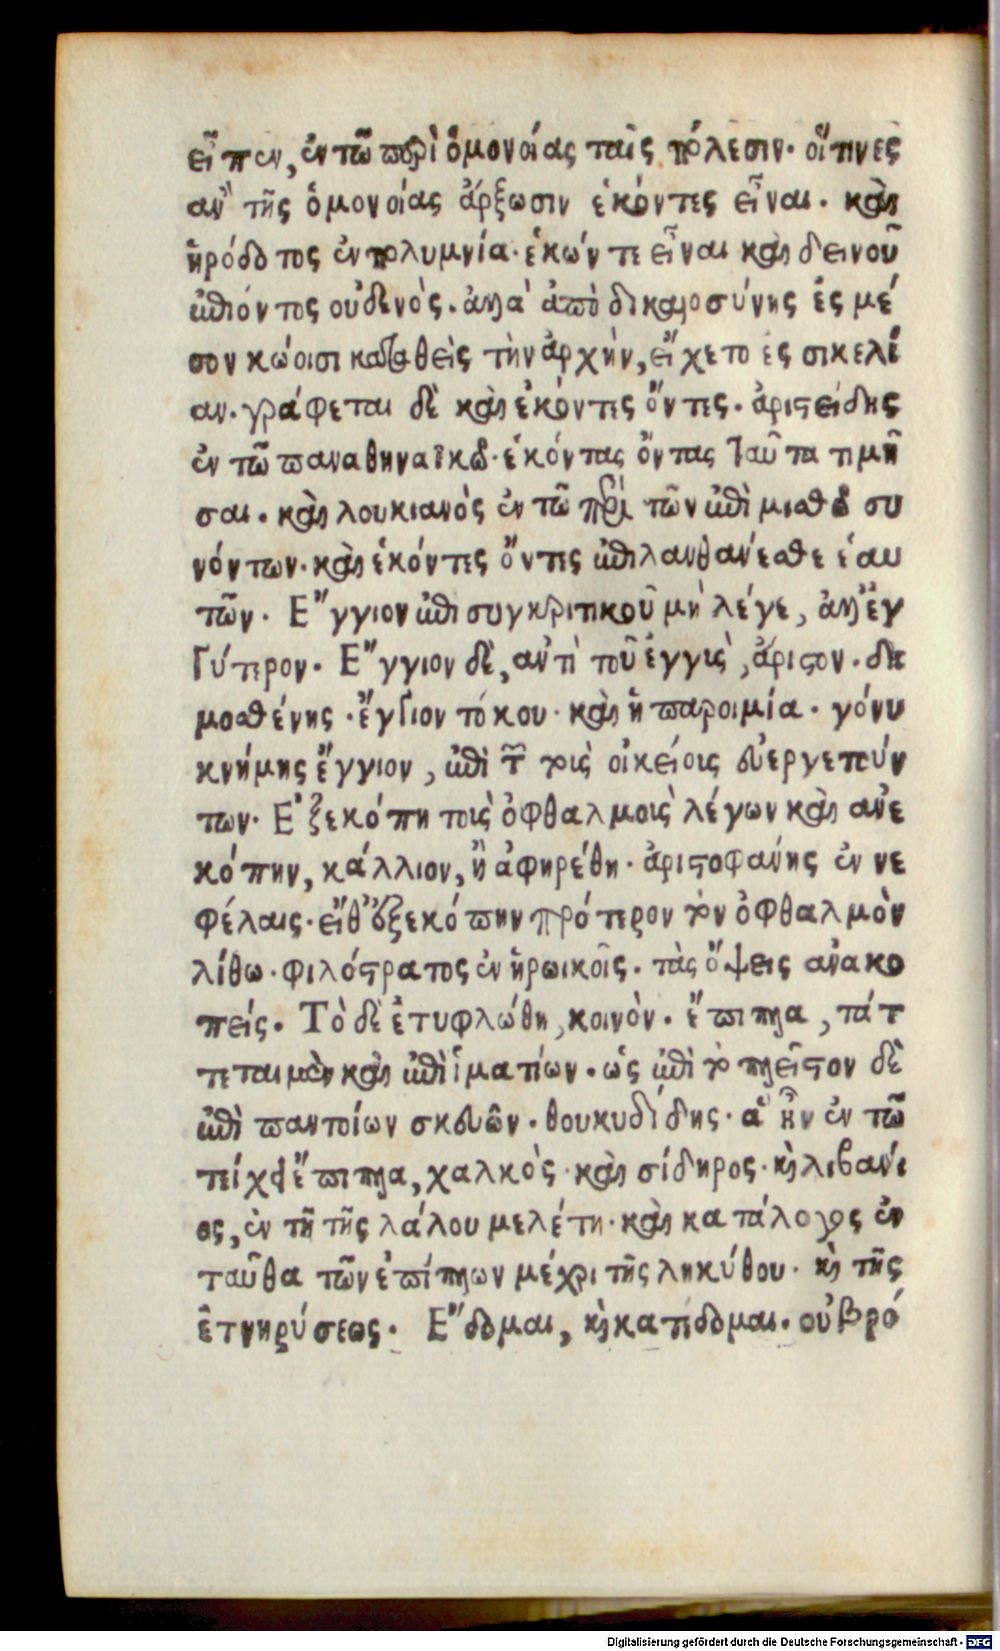 εἶπεν, ἐν τῶ περὶ ὁμονοίας ταῖς πόλεσιν· οἵτινες
ἂν τῆς ὁμονοίας ἄρξωσιν ἑκόντες εἶναι. καὶ
ἡρόδοτος ἐν πολυμνία· ἑκών τε εἶναι καὶ δεινοῦ
ἐπιόντος οὐδενὸς. ἀλλὰ ἀπὸ δικαιοσύνης ἐς μέ
σον κώοισι καταθεὶς τὴν ἀρχὴν, εἴχετο ἐς σικελί
αν. γράφεται δὲ καὶ ἑκόντες ὄντες. ἀριστείδης
ἐν τῶ παναθηναϊκῶ· ἑκόντας ὄντας ταῦτα τιμῆ
σαι. καὶ λουκιανὸς ἐν τῶ περὶ τῶν ἐπὶ μισθῶ συ
νόντων. καὶ ἑκόντες ὄντες ἐπιλανθάνεσθε ἑαυ
τῶν. Ἔγγιον ἐπὶ συγκριτικοῦ μὴ λέγε, ἀλλ' ἐγ
γύτερον. Ἔγγιον δὲ, ἀντὶ τοῦ ἐγγὺς, ἄριστον. δη
μοσθένης· ἔγγιον τόκου· καὶ ἡ παροιμία· γόνυ
κνήμης ἔγγιον, ἐπὶ τῶν τοὺς οἰκείους εὐεργετούν
των. Ἐξεκόπη τοὺς ὀφθαλμοὺς λέγων καὶ ἀνε
κόπην, κάλλιον, ἢ ἀφηρέθη· ἀριστοφάνης ἐν νε
φέλαις· εἴθ' ἐξεκόπην πρότερον τὸν ὀφθαλμὸν
λίθω· φιλόστρατος ἐν ἡρωικοῖς. τὰς ὄψεις ἀνακο
πείς. Τὸ δὲ ἐτυφλώθη, κοινὸν. ἔπιπλα, τάτ
τεται μὲν καὶ ἐπὶ ἱματίων. ὡς ἐπὶ τὸ πλεῖστον δὲ
ἐπὶ παντοίων σκευῶν. θουκυδίδης· ἃ ἦν ἐν τῶ
τείχει ἔπιπλα, χαλκὸς καὶ σίδηρος. καὶ λιβάνι
ος, ἐν τῆ τῆς λάλου μελέτη· καὶ κατάλογος ἐν
ταῦθα τῶν ἐπίπλων μέχρι τῆς ληκύθου. καὶ τῆς
ἐτνηρύσεως. Ἔδομαι, καὶ κατέδομαι. οὐ βρώ